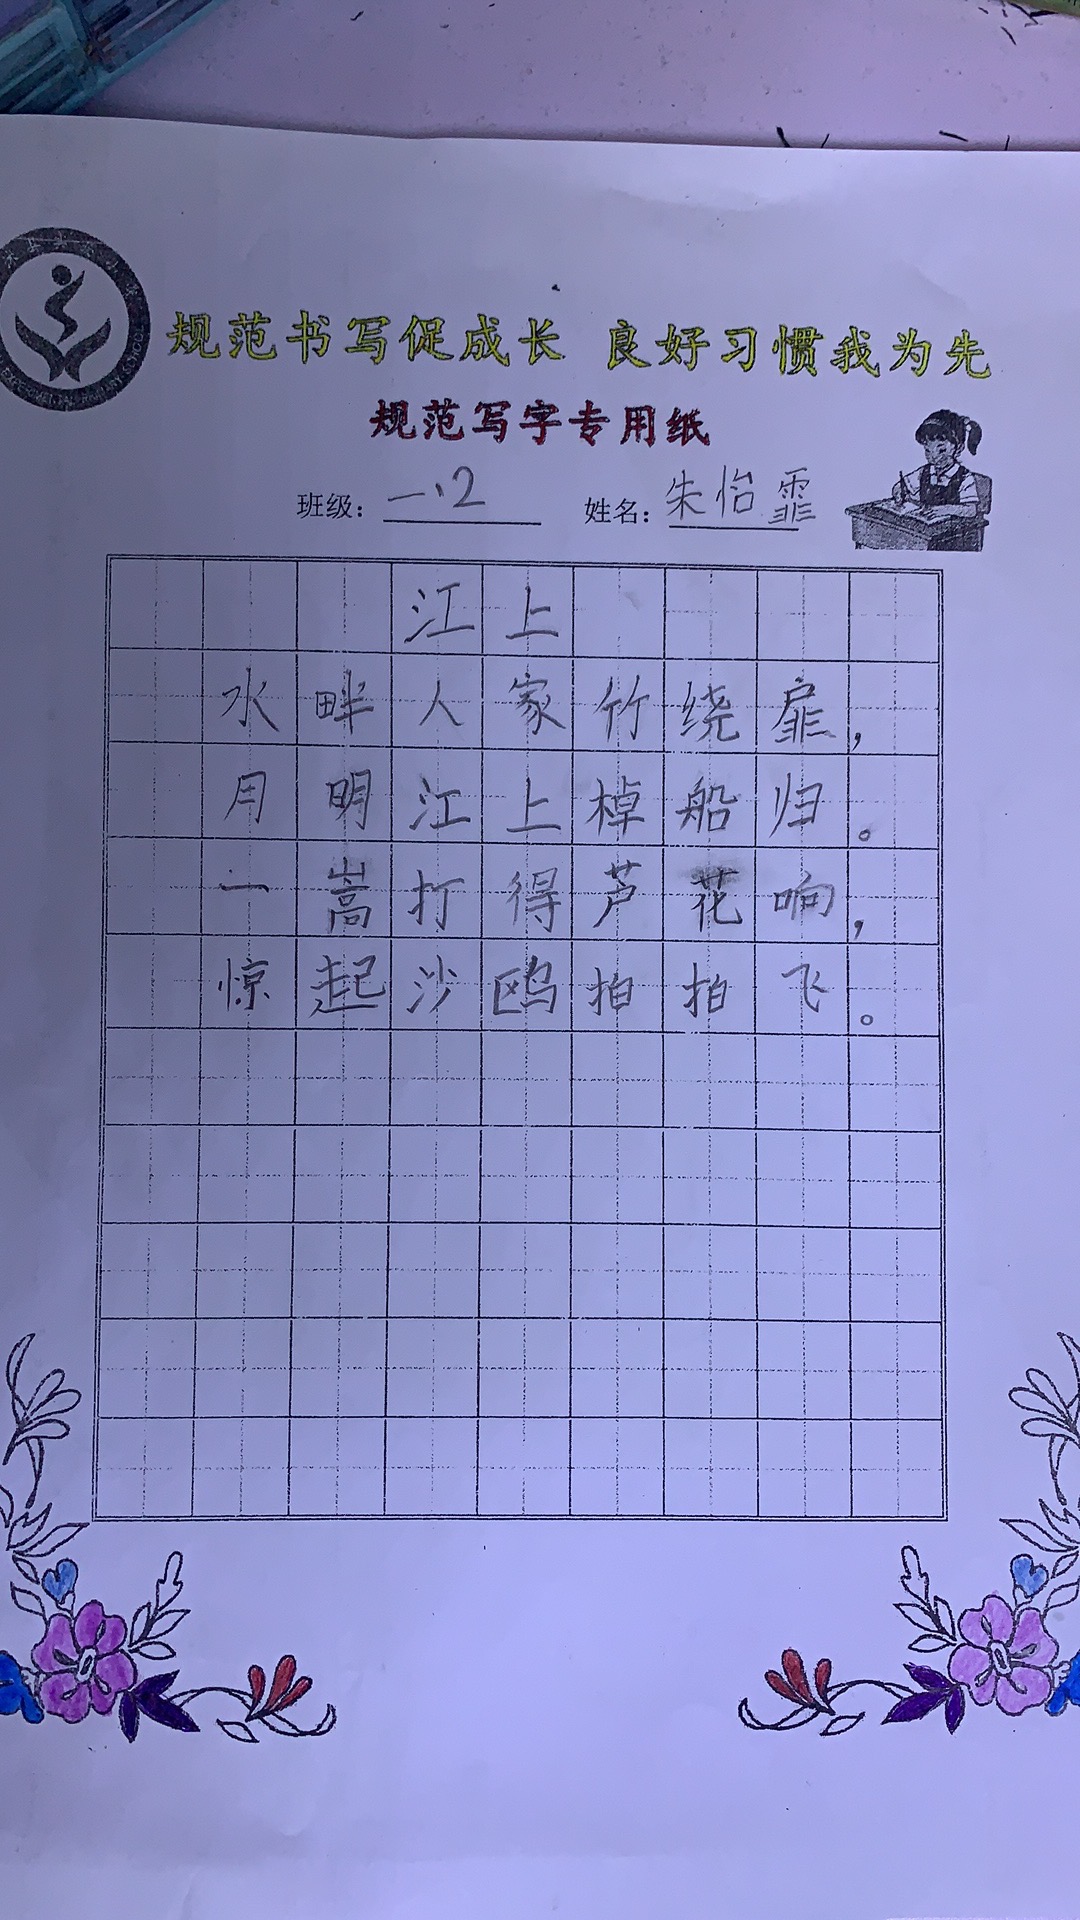 规范书写促成长 良好习惯我为先
规范写字专用纸
班级：一.2 姓名：朱怡霏
江上
水畔人家竹绕扉，
月明江上棹船归。
一嵩打得芦花响，
惊起沙鸥拍拍飞。